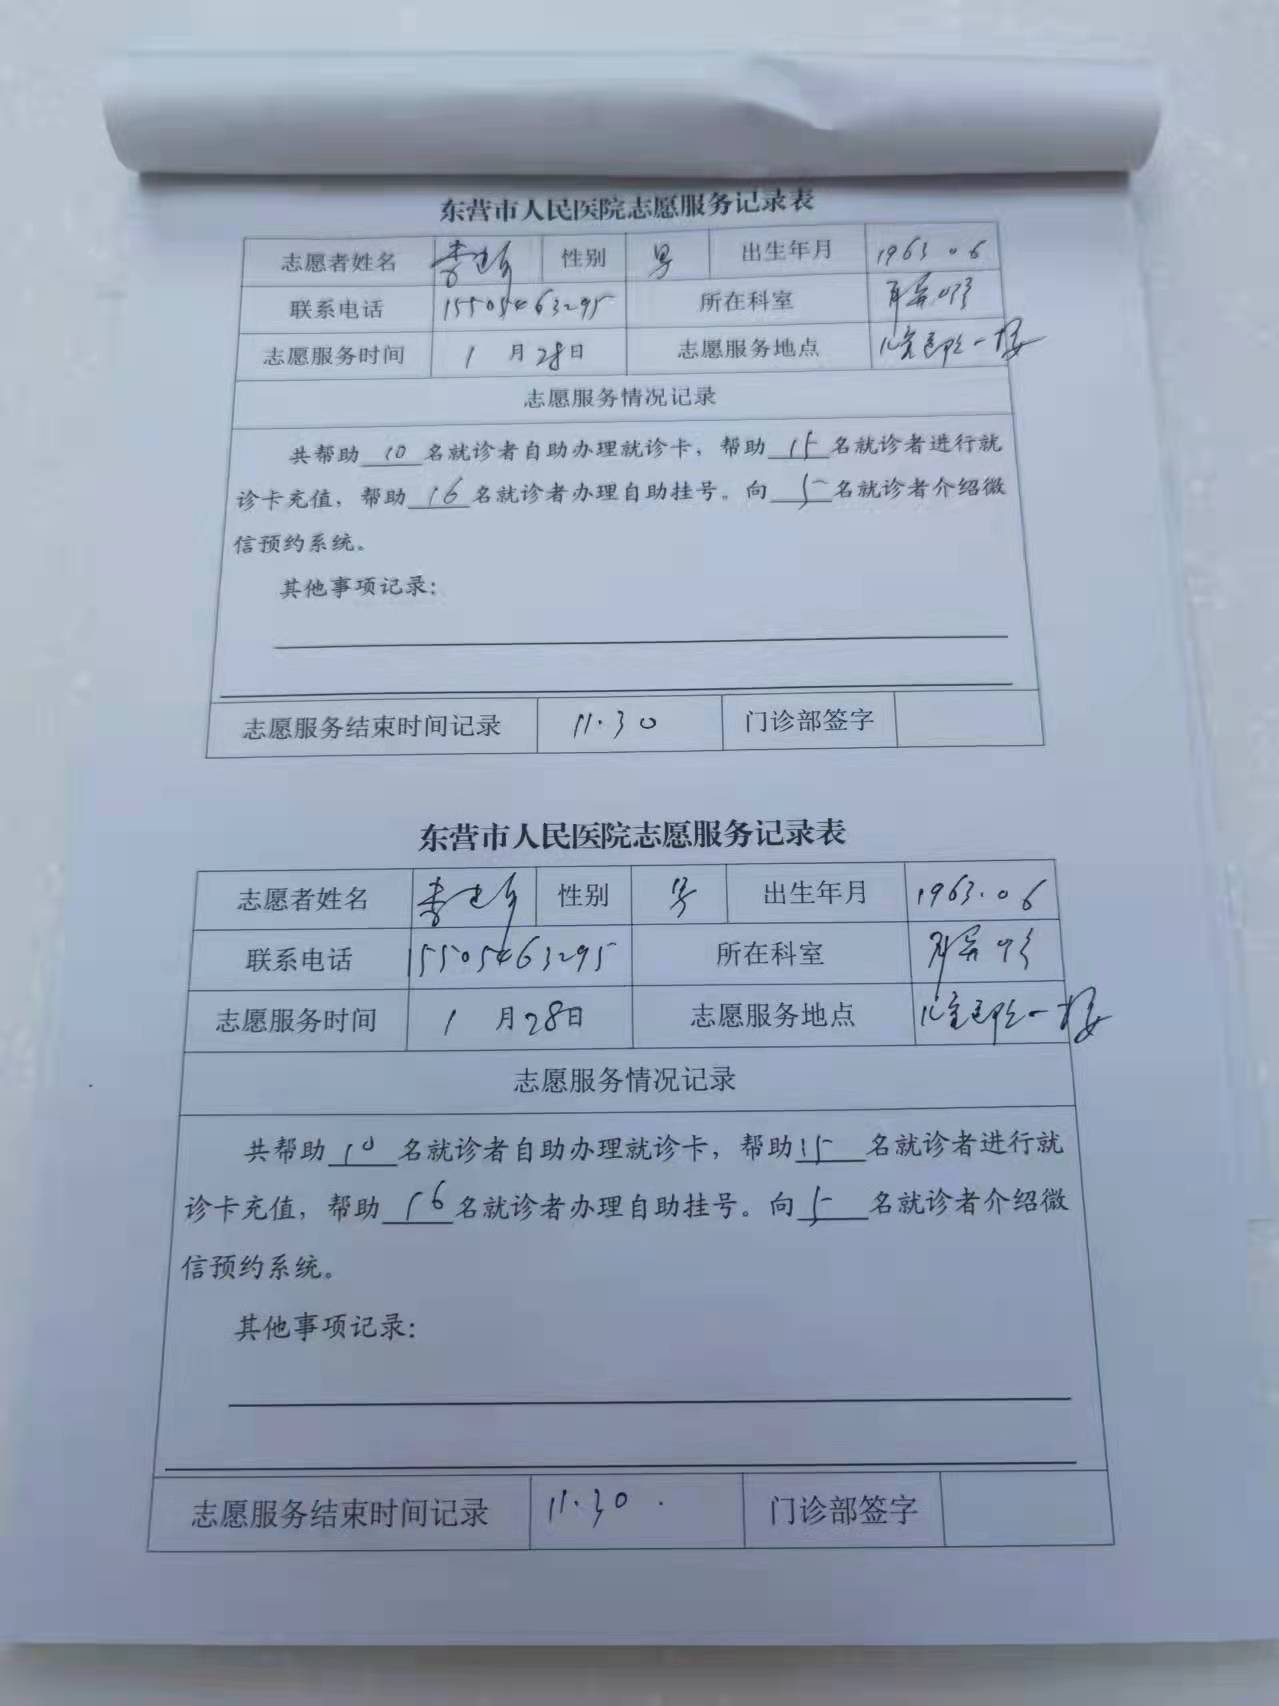 东营市人民医院志愿服务记录表
志愿者姓名 李 性别 男 出生年月 1963.06
联系电话 15505463295 所在科室
志愿服务时间 1月28日 志愿服务地点 儿童医院一楼
志愿服务情况记录
共帮助 10 名就诊者自助办理就诊卡，帮助 15 名就诊者进行就
诊卡充值，帮助 16 名就诊者办理自助挂号。向 5 名就诊者介绍微
信预约系统。
其他事项记录：
志愿服务结束时间记录 11.30 门诊部签字
东营市人民医院志愿服务记录表
志愿者姓名 李 性别 男 出生年月 1963.06
联系电话 15505463295 所在科室
志愿服务时间 1月28日 志愿服务地点 儿童医院一楼
志愿服务情况记录
共帮助 10 名就诊者自助办理就诊卡，帮助 15 名就诊者进行就
诊卡充值，帮助 16 名就诊者办理自助挂号。向 5 名就诊者介绍微
信预约系统。
其他事项记录：
志愿服务结束时间记录 11.30. 门诊部签字